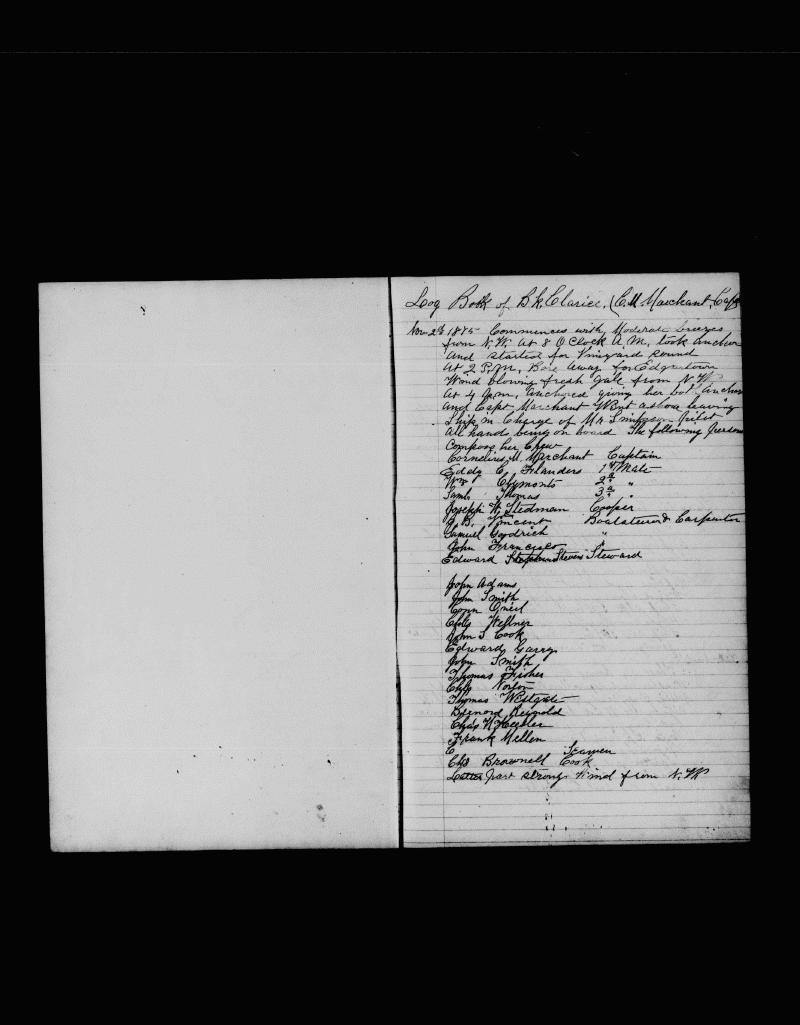 Log Book of Bk. Clarice. (C.M. Marchant, Capt
Nov 2d 1875 Commences with Moderate breezes
from N.W. at 8 O Clock A.M. took anchor
and started for Vineyard Sound
At 2 P.M. Bore away for Edgartown
Wind blowing fresh gale from N.W.
At 4 P.m. anchored giving her both anchors
and Capt Marchant Went ashore leaving
Ship in Charge of Mr Simpson Pilot
All hands being on board The following persons
Compose her Crew
Cornelius M. Marchant Captain
Eddy C. Flanders 1st Mate
Wm Clymonts 2d "
Saml Thomas 3d "
Joseph W. Stedman Cooper
J. B. Vincent Boatsteerer & Carpenter
Samuel Goodrich "
John Francisco "
Edward Stevens Steward
John Adams
John Smith
Conn Oneil
Chls Kellner
John S Cook
Edward Garry
John Smith
Thomas Fisher
Chls Norton
Thomas Westgate
Bernard Reigold
Chas H Kesler
Frank Mellen
E Seamen
Chs Brownell Cook
Latter part strong wind from N.W